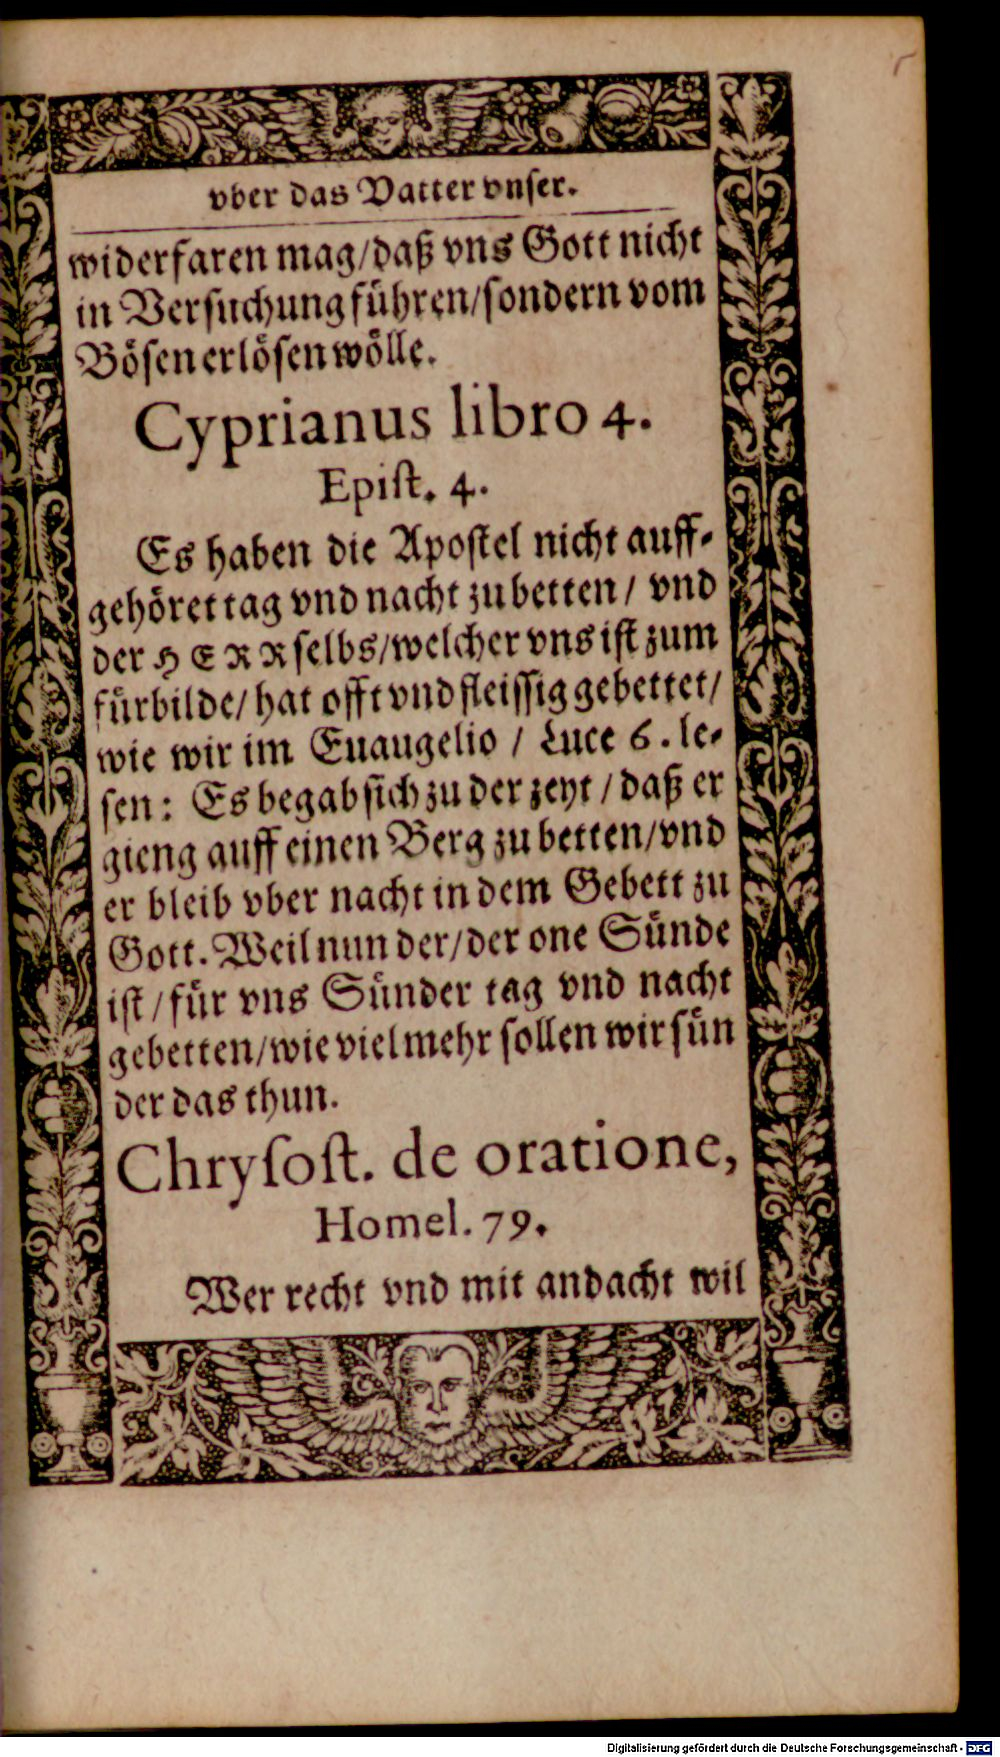 5
vber das Vatter vnser.
widerfaren mag/daß vns Gott nicht
in Versuchung führen/sondern vom
Bösen erlösen wölle.
Cyprianus libro 4.
Epist. 4.
Es haben die Apostel nicht auff-
gehöret tag vnd nacht zu betten / vnd
der HERR selbs/welcher vns ist zum
fürbilde/ hat offt vnd fleissig gebettet/
wie wir im Euaugelio / Luce 6. le-
sen: Es begab sich zu der zeyt / daß er
gieng auff einen Berg zu betten/vnd
er bleib vber nacht in dem Gebett zu
Gott. Weil nun der/der one Sünde
ist / für vns Sünder tag vnd nacht
gebetten/wie viel mehr sollen wir sün
der das thun.
Chrysost. de oratione,
Homel. 79.
Wer recht vnd mit andacht wil
Digitalisierung gefördert durch die Deutsche Forschungsgemeinschaft - DFG